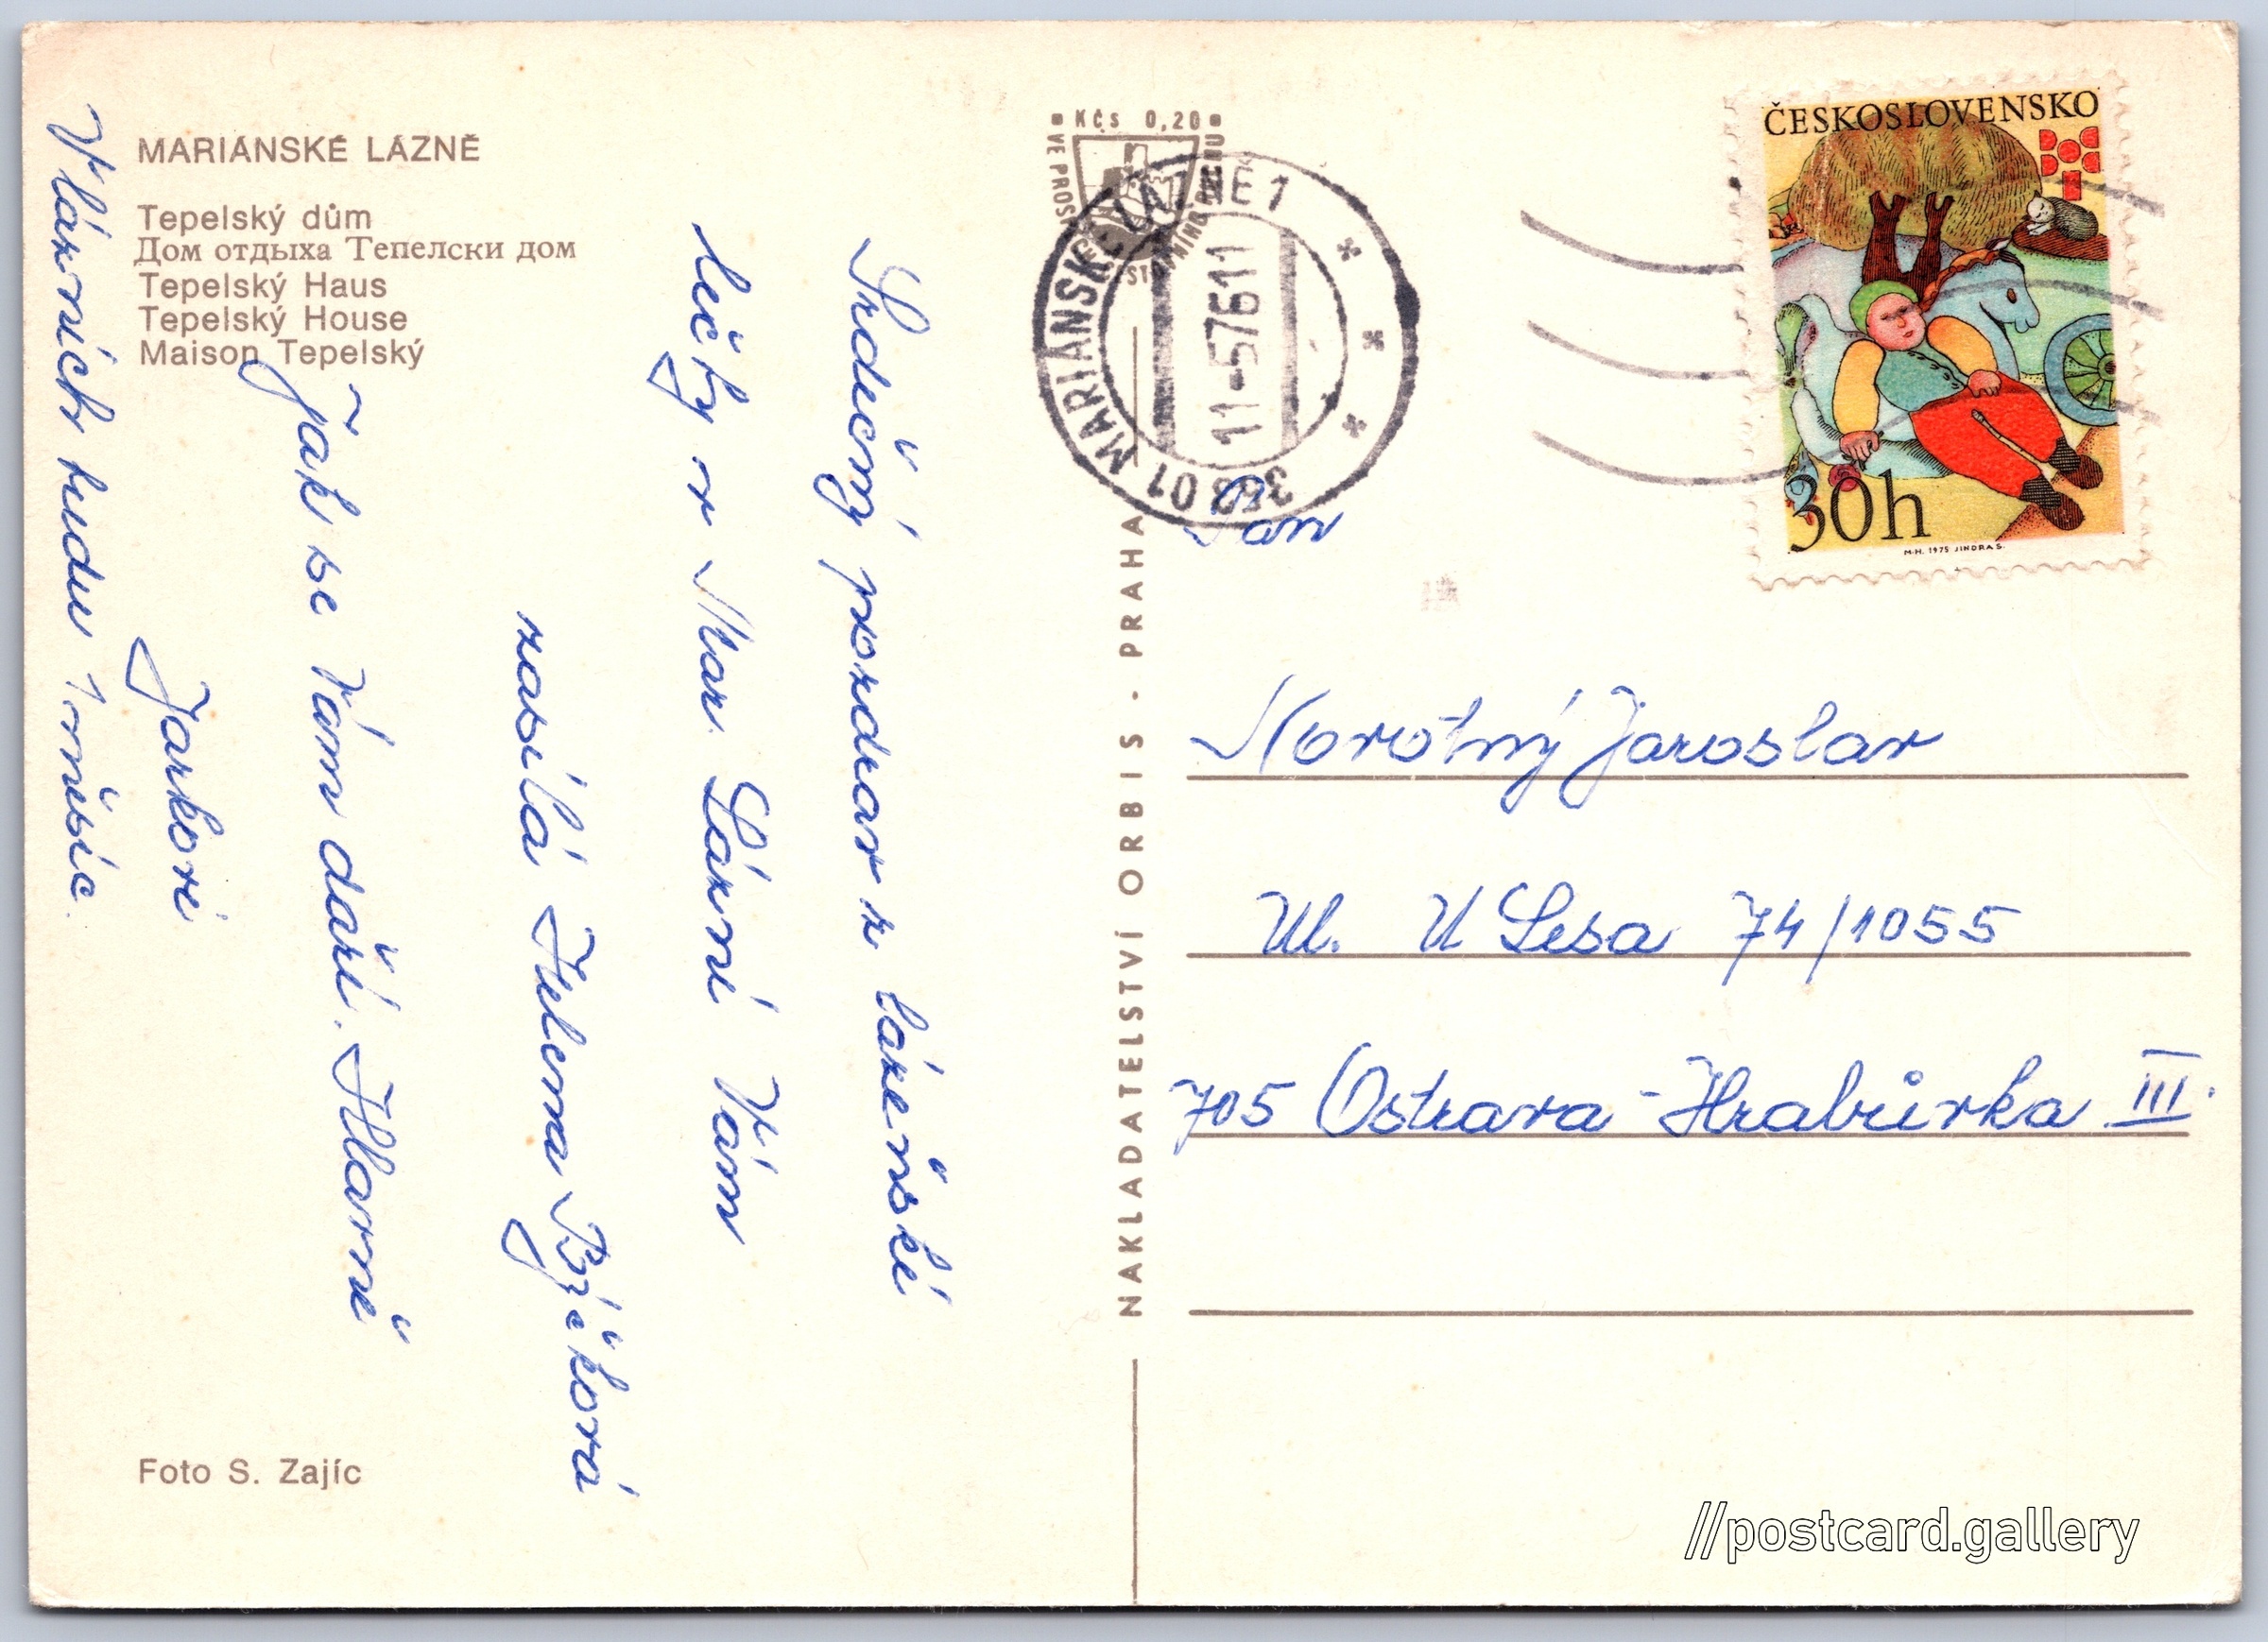 MARIÁNSKÉ LÁZNĚ
Tepelský dům
Дом отдыха Тепелски дом
Tepelský Haus
Tepelský House
Maison Tepelský
Srdečný pozdrav z lázeňské
léčby v Mar. Lázní Vám
zasílá Hulena
Jak se Vám daří. Hlavně
Jarkovi
V lázních budu 1 měsíc.
Foto S. Zajíc
NAKLADATELSTVÍ ORBIS - PRAHA
Kčs 0,20
353 01 MARIÁNSKÉ LÁZNĚ 1
11-57611
ČESKOSLOVENSKO
30h
M.H. 1975 JINDRA S.
Pan
Novotný Jaroslav
Ul. U Lesa 74/1055
705 Ostrava - Hrabůvka III.
//postcard.gallery